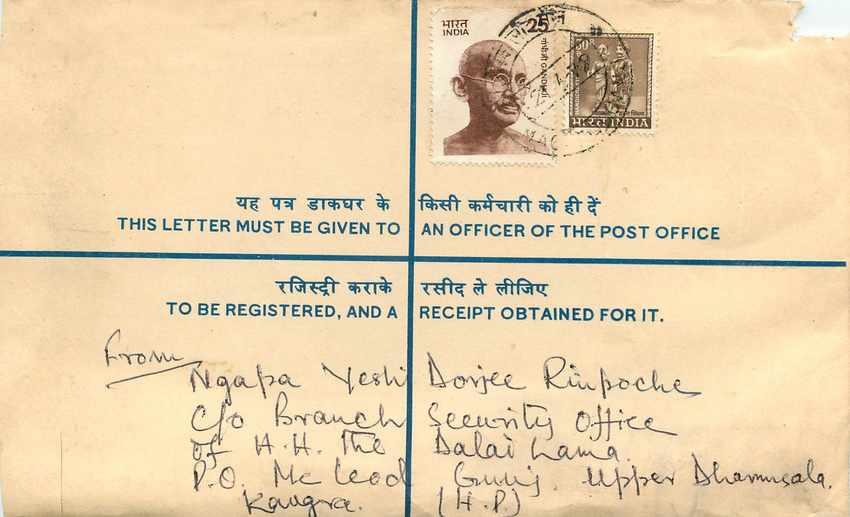 भारत 25
INDIA
गांधी जी GANDHIJI
30
भारत INDIA
यह पत्र डाकघर के किसी कर्मचारी को ही दें
THIS LETTER MUST BE GIVEN TO AN OFFICER OF THE POST OFFICE
रजिस्ट्री कराके रसीद ले लीजिए
TO BE REGISTERED, AND A RECEIPT OBTAINED FOR IT.
From
Ngapa Yeshi Dorjee Rinpoche
C/o Branch Security Office
of H.H. The Dalai Lama.
P.O. Mc Leod Gunj. Upper Dharmsala.
Kangra. (H.P.)